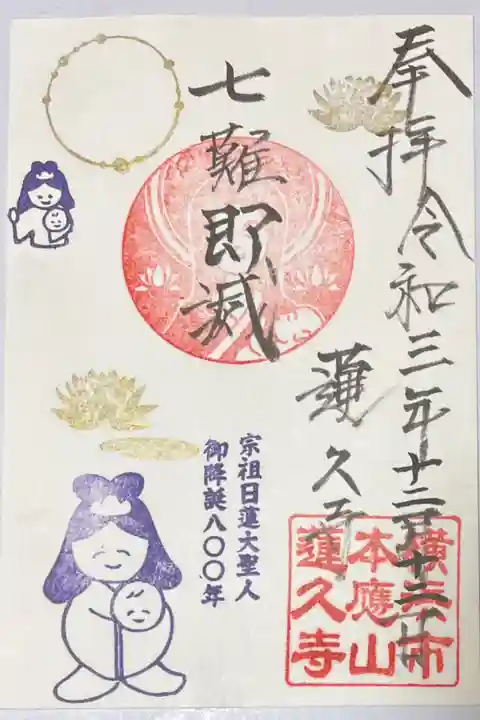 奉拝 令和三年十二月十二日
蓮久寺
七難即滅
宗祖日蓮大聖人
御降誕八〇〇年
横手市
本應山
蓮久寺